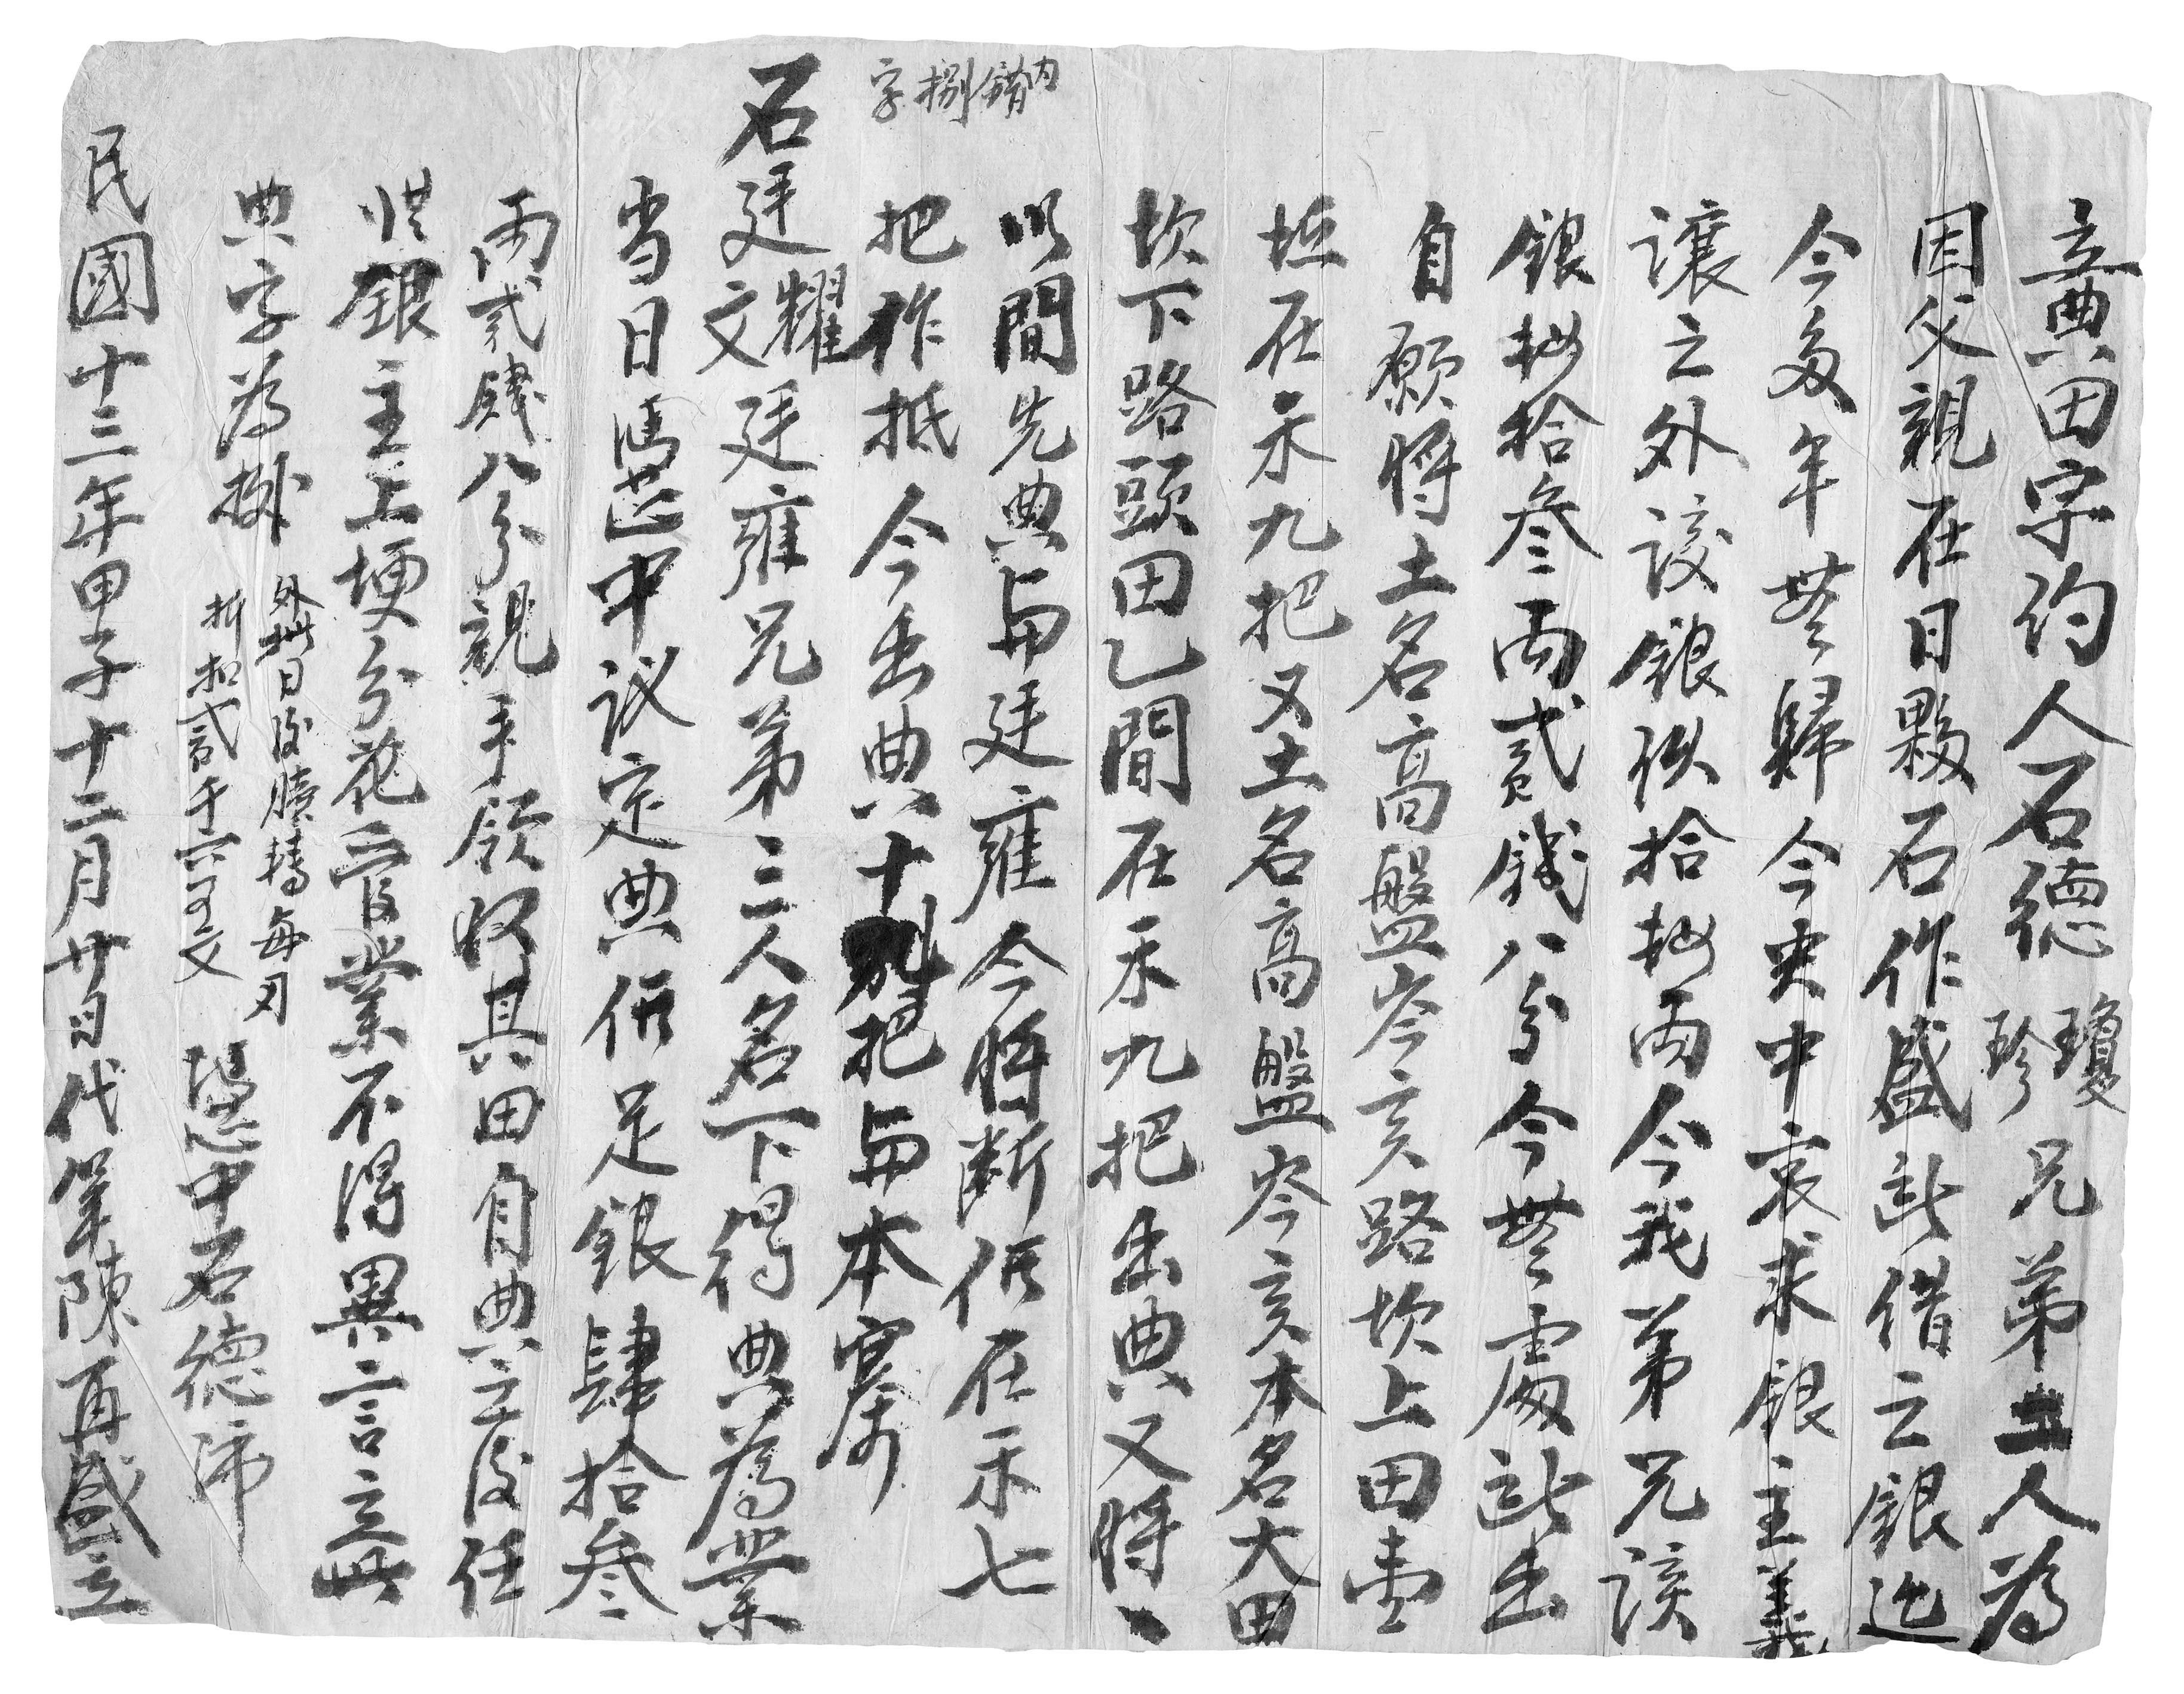 立典田字约人石德瓊珍兄弟二人為
因父親在日夥石作盛訴借之銀迄
今多年無歸今央中哀求銀主義
讓之外該銀肆拾肆两今我弟兄該
銀肆拾叁两贰錢八分今無處訴出
自願將土名高盤岑亥路坎上田壹
坵在禾九把又土名高盤岑亥本名大田
坎下路頭田乙間在禾九把出典又將
以間先典与廷雍今將断价在禾七
把作抵今出典十捌把与本寨
内錯捌字
石廷文耀廷雍兄弟三人名下得典為業
当日憑中议定典价足銀肆拾叁
两贰錢八分親手領收其田自典之後任
從銀主上埂分花管業不得異言立此
典字為據
外批日後贖轉每刃
折扣贰千六百文
憑中石德沛
民國十三年甲子十二月廿日代筆陳再盛立